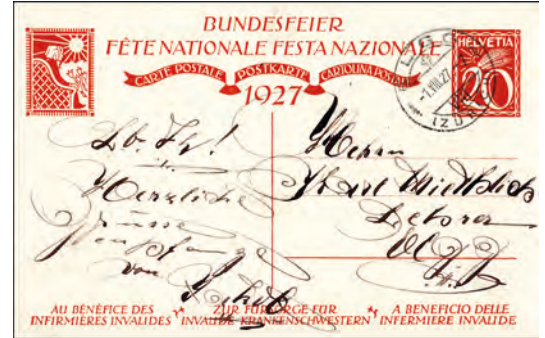 BUNDESFEIER
FÊTE NATIONALE FESTA NAZIONALE
CARTE POSTALE POSTKARTE CARTOLINA POSTALE
1927
HELVETIA
20
-1.VIII.27
Lb.
Herrn
Herzliche
Karl
Grüsse
Lehrer
von
AU BÉNÉFICE DES
INFIRMIÈRES INVALIDES
ZUR FÜRSORGE FÜR
INVALIDE KRANKENSCHWESTERN
A BENEFICIO DELLE
INFERMIERE INVALIDE